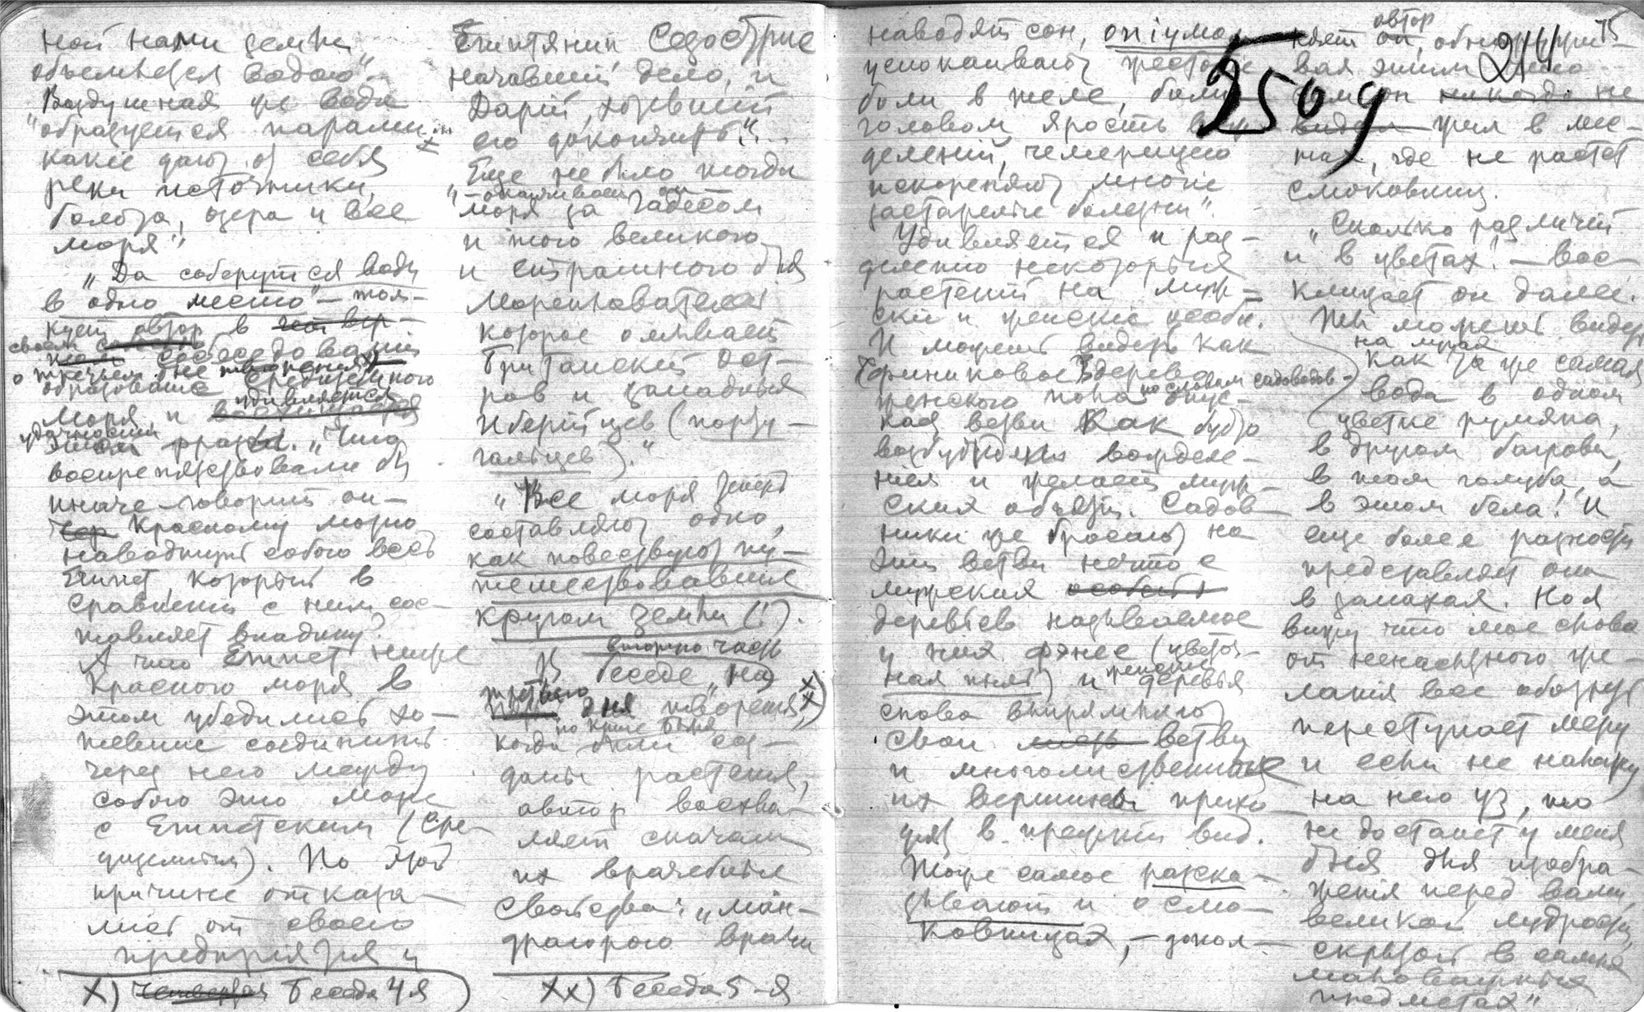 ной нами земли,
объемлется водою".
Воздушная же вода
"образуется парами
какіе дают от себя
реки источники,
болота, озера и все
моря"
"Да соберутся воды
в одно место" — тол-
кует автор в
своей беседованій
о третьем дне творенія x)
образование Средиземного
моря и удивляется
удачности фразы. "Что
воспрепятствовало бы
иначе — говорит он —
Красному морю
наводнить собою весь
Египет который в
сравненіи с ним сос-
тавляет впадину?
А что Египет ниже
Красного моря в
этом убедились хо-
тевшіе соединить
через него между
собою это море
с Египетским (Сре-
диземным). По этой
причине отказа-
лись от своего
предпріятія и
x) Беседа 4я
Египтянин Сезострис
начавшій дело, и
Дарій, хотевшій
его докончить".
Еще не было тогда
моря за Гадесом
и того великого
и страшного для
мореплавателей
которое омывает
Британскій ост-
ров и западных
Иберійцев (порту-
гальцев)."
"Все моря теперь
составляют одно,
как повествуют пу-
тешествовавшие
кругом земли (!).
В вторую часть
беседе "на
третьего дня творенія, xx)
когда были соз-
даны растенія,
автор восхва-
ляет сначала
их врачебные
свойства: "ман-
драгорою врачи
xx) Беседа 5-я
наводят сон, опіумом
успокаивают жестокіе
боли в теле,
головом ярость
делений, чемерицею
искореняют многіе
застарелые болезни".
Удивляется и раз-
деленію некоторых
растений на муж-
ски и женскіе особи.
И можешь видеть как
финиковое дерево
женского пола по словам садоводов опус-
кая ветви как будто
возбуждены вожделе-
нием и желает муж-
ских объятій. Садов-
ники же бросают на
эти ветви нечто с
мужских
деревьев называемое
у них фэнес (цветоч-
ная пыль) и женскіе деревья
снова выпрямляют
свои ветви
и многолиственные
их вершины прихо-
дят в прежній вид.
Тоже самое расска-
зывают и о смо-
ковницах, — допол-
автор 75
няет он, обнаружи- 211
вая этим
250 g
что он никогда не
видел жил в мес-
тах, где не растет
смоковниц.
"Сколько различій
и в цветах! — вос-
клицает он далее.
Ты можешь видеть
на лугах
как та же самая
вода в одном
цветке румяна,
в другом багрова,
в том голуба, а
в этом бела! И
еще более разности
представляет она
в запахах. Но я
вижу что мое слово
от ненасытного же-
ланія все обозреть
переступает меру
и если не наложу
на него уз, то
не достанет у меня
дня для изобра-
женія перед вами,
великой мудрости,
скрытой в самых
маловажных
предметах"